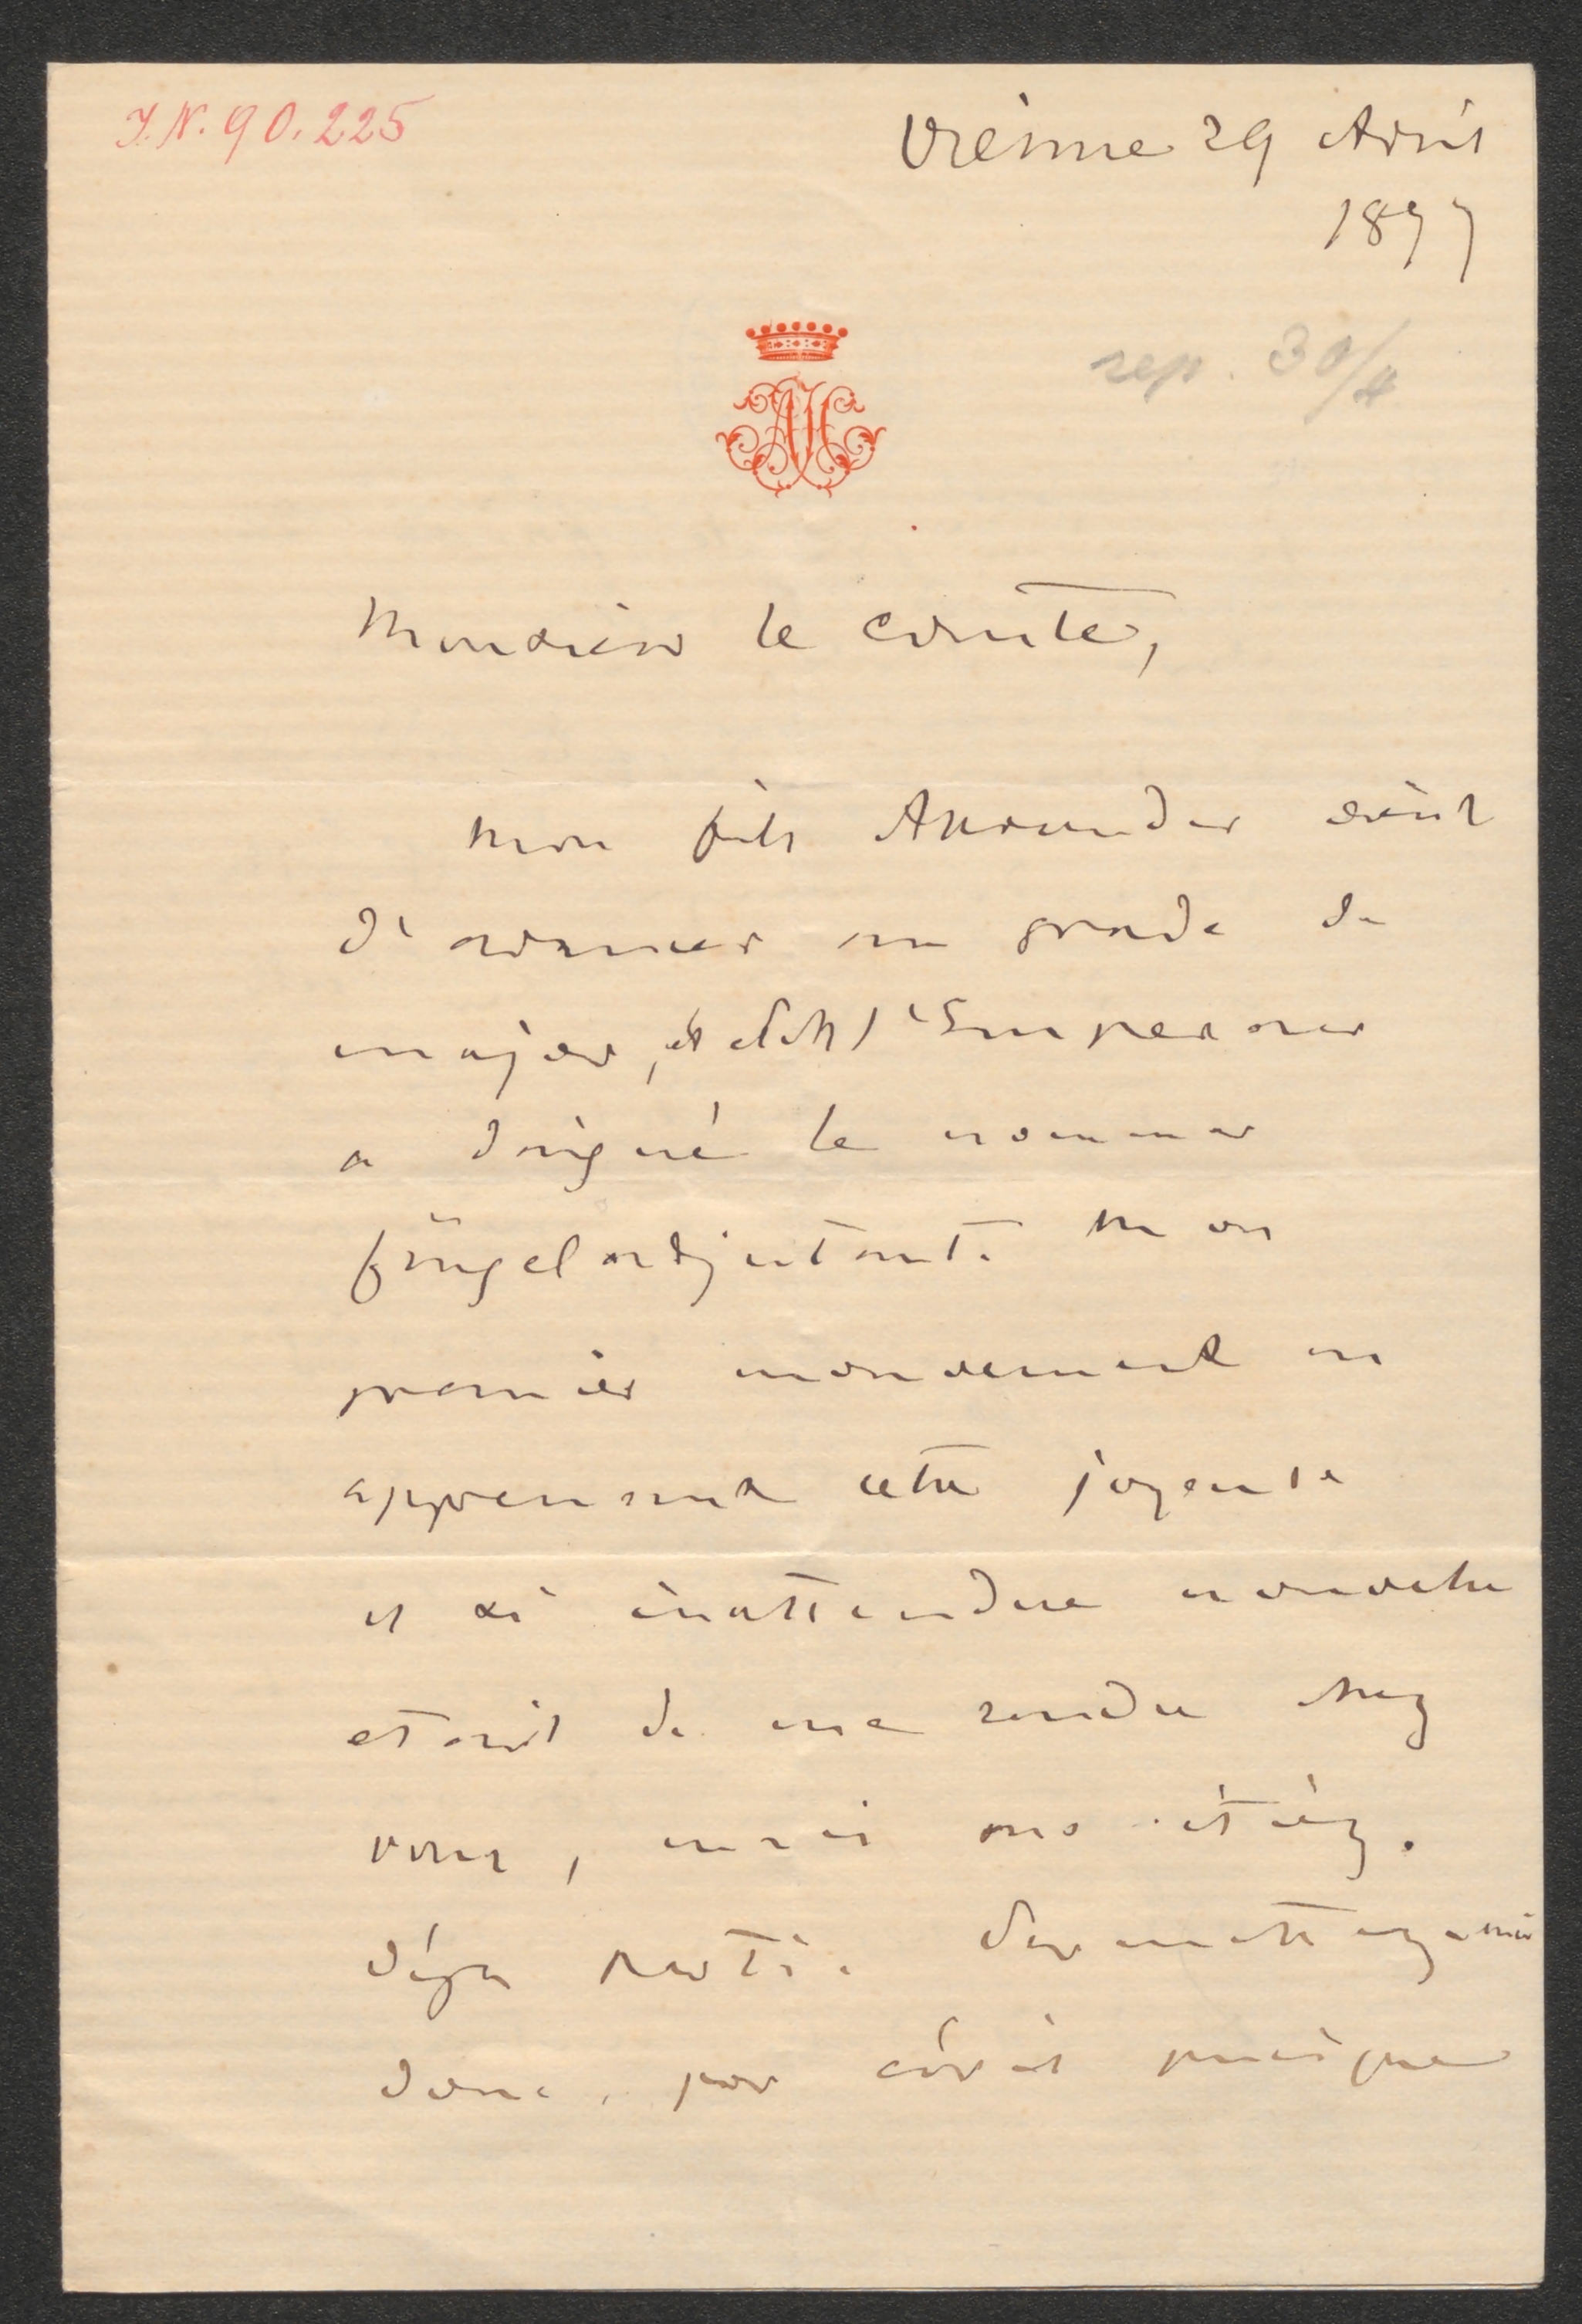 I.N. 90.225
Vienne 29 Avril
1897
rep. 30/4
Monsieur le Comte,
Mon fils Alexander vient
d'avancer au grade de
major, et l'Empereur
a daigné le nommer
flügeladjutant. Mon
premier mouvement en
apprenant cette joyeuse
et si inattendue nouvelle
etait de me rendre chez
vous, mais vous étiez
déja parti. Permettez moi
donc, par écrit puisque